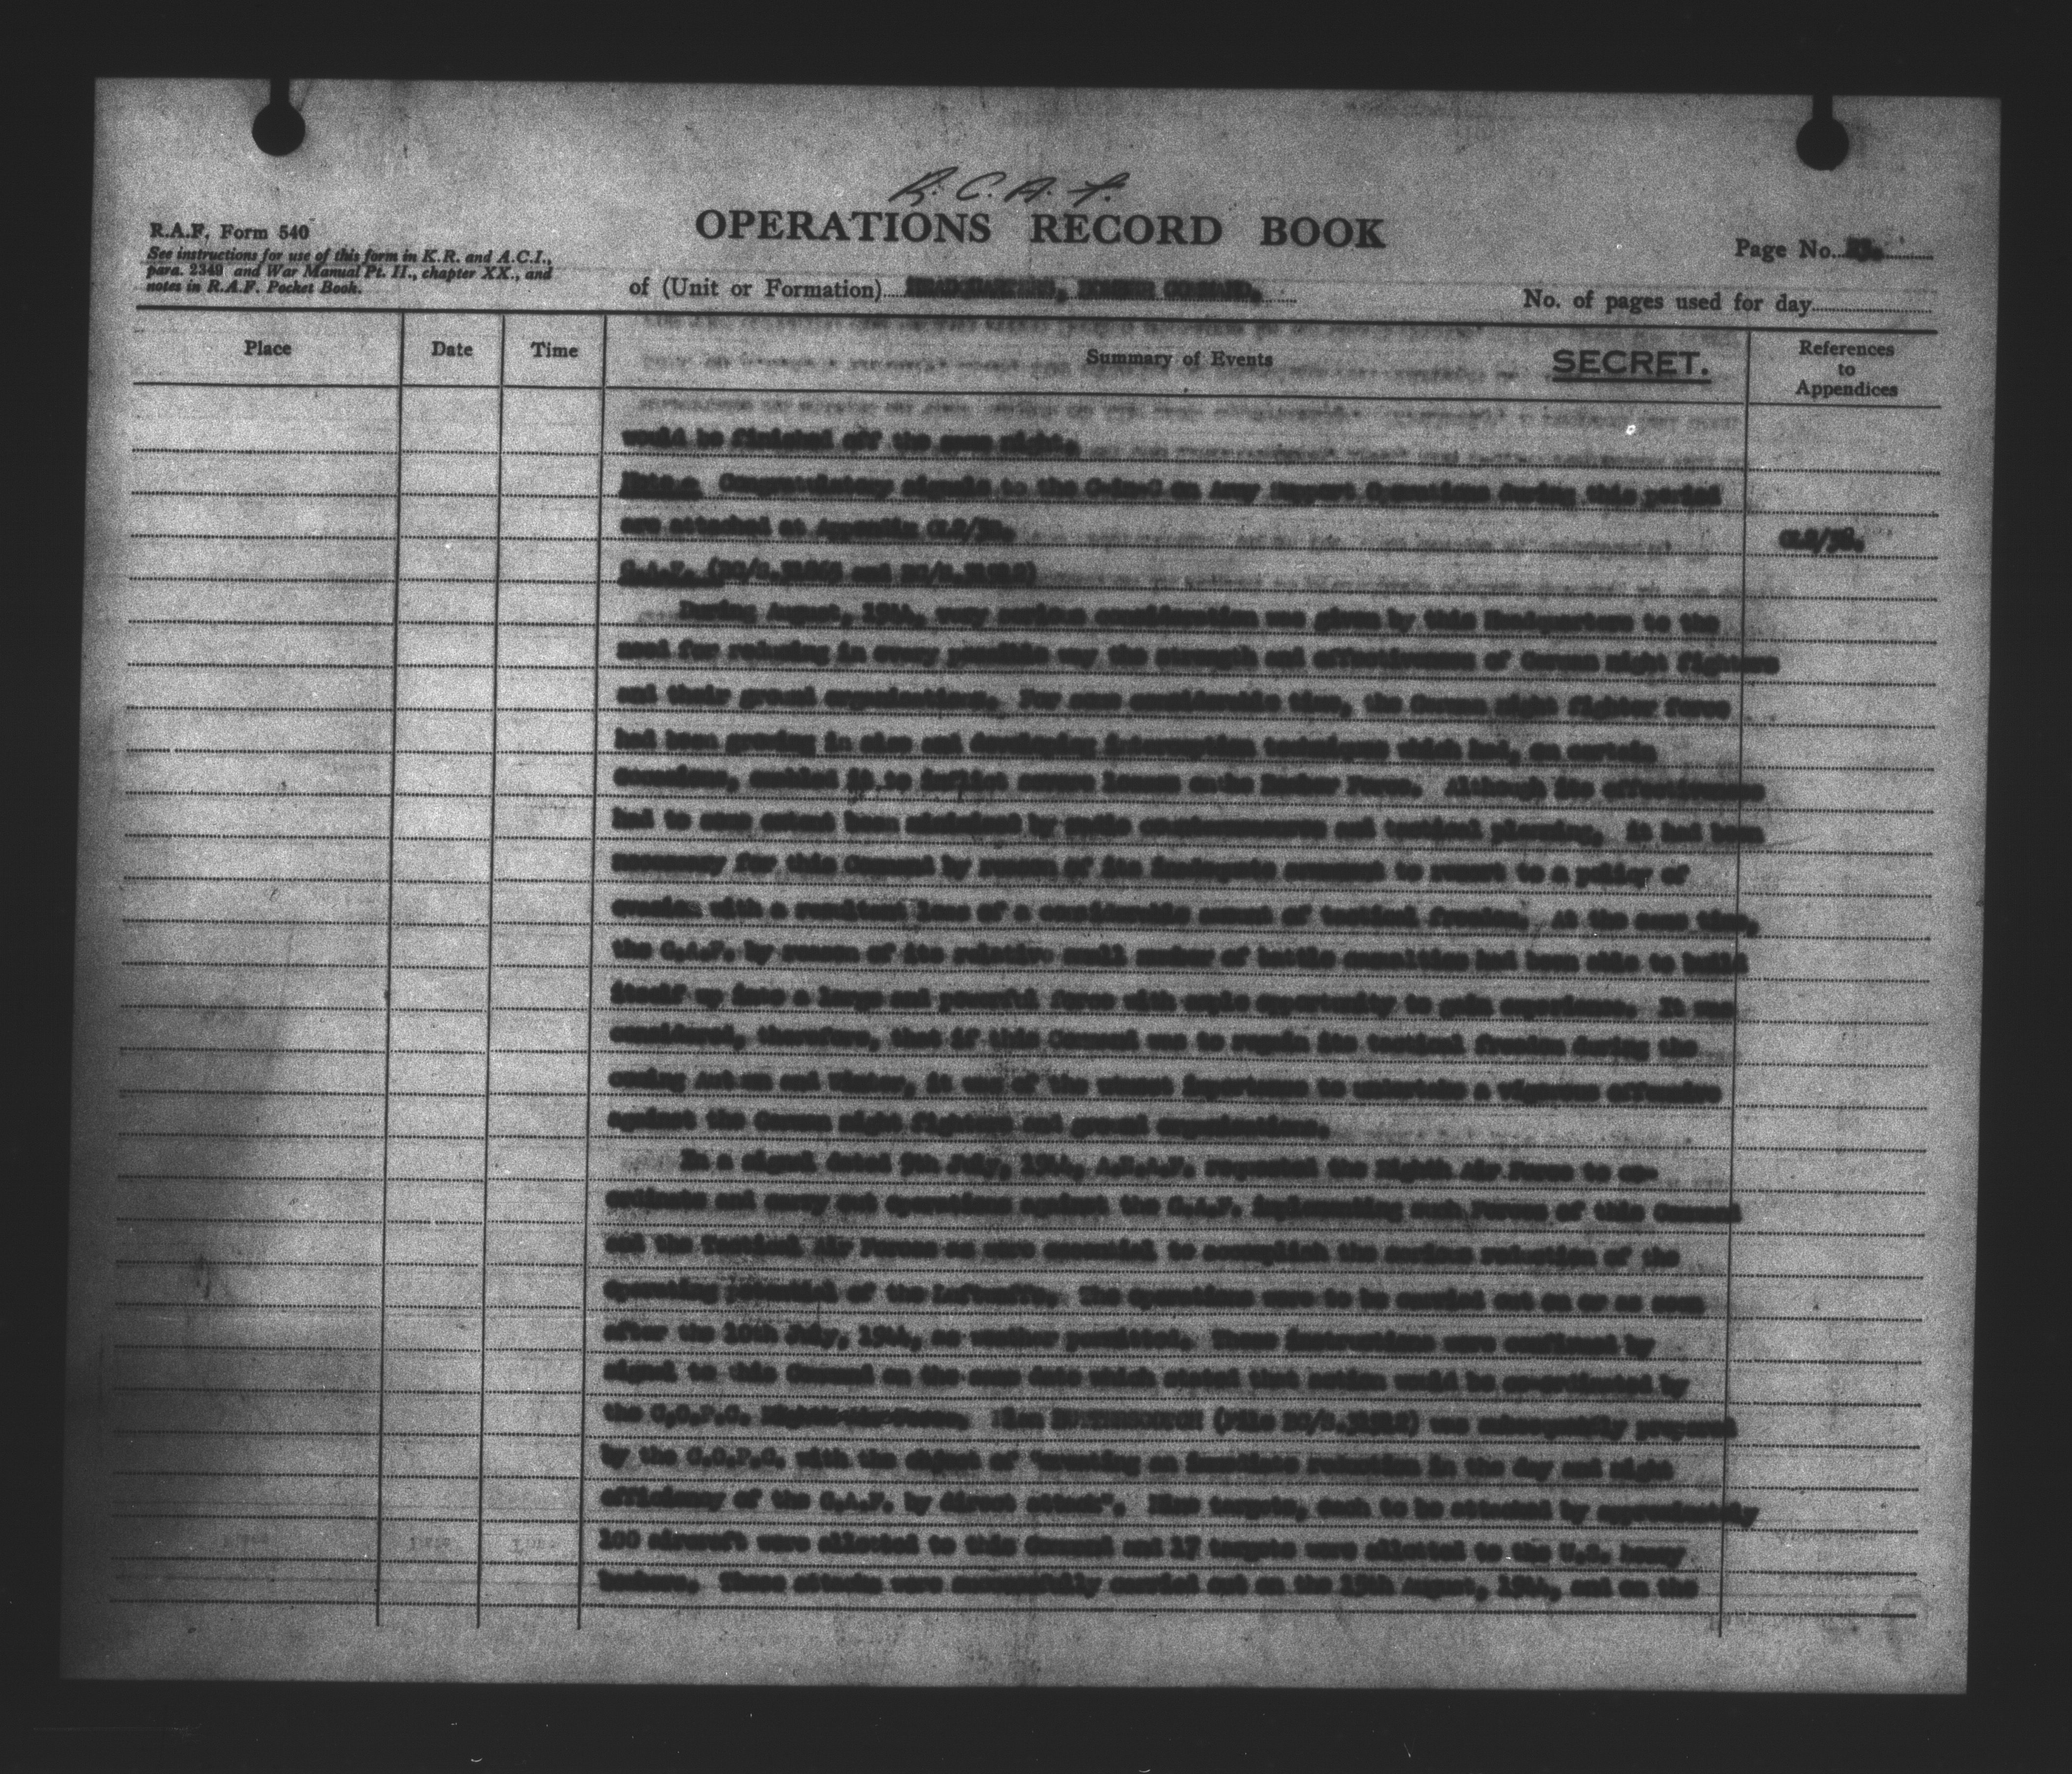 R. C. A. F.
R.A.F. Form 540
OPERATIONS RECORD BOOK
See instructions for use of this form in K.R. and A.C.I.,
para. 2349 and War Manual Pt. II., chapter XX., and
notes in R.A.F. Pocket Book.
Page No.
of (Unit or Formation) HEADQUARTERS, BOMBER COMMAND.
No. of pages used for day
Place Date Time Summary of Events SECRET. References
to
Appendices
would be finished off the same night.
Note.- Congratulatory signals to the C-in-C on Army Support Operations during this period
are attached at Appendix
G.A.F.
During August, 1944, very serious consideration was given by this Headquarters to the
need for reducing in every possible way the strength and effectiveness of German night fighters
and their ground organisations. For some considerable time, the German night fighter force
had been growing in size and developing interception techniques which had, on certain
occasions, enabled it to inflict severe losses on the Bomber Force. Although its effectiveness
had to some extent been minimised by radio countermeasures and tactical planning, it had been
necessary for this Command by reason of its inadequate armament to resort to a policy of
evasion with a resultant loss of a considerable amount of tactical freedom. At the same time,
the G.A.F. by reason of its relative small number of battle casualties had been able to build
itself up into a large and powerful force with ample opportunity to gain experience. It was
considered, therefore, that if this Command was to regain its tactical freedom during the
coming Autumn and Winter, it was of the utmost importance to undertake a vigorous offensive
against the German night fighters and ground organisations.
In a signal dated 9th July, 1944, A.E.A.F. requested the Eighth Air Force to co-
ordinate and carry out operations against the G.A.F. implementing such Forces of this Command
and the Tactical Air Forces as were essential to accomplish the serious reduction of the
operating potential of the Luftwaffe. The operations were to be carried out on or as soon
after the 10th July, 1944, as weather permitted. These instructions were confirmed by
signal to this Command on the same date which stated that action would be coordinated by
the C.O.P.C. Eighth Air Force. Plan BUTTERSCOTCH (File was subsequently prepared
by the C.O.P.C. with the object of "creating an immediate reduction in the day and night
efficiency of the G.A.F. by direct attack". Nine targets, each to be attacked by approximately
100 aircraft were allotted to this Command and 17 targets were allotted to the U.S. heavy
bombers. These attacks were successfully carried out on the 15th August, 1944, and on the